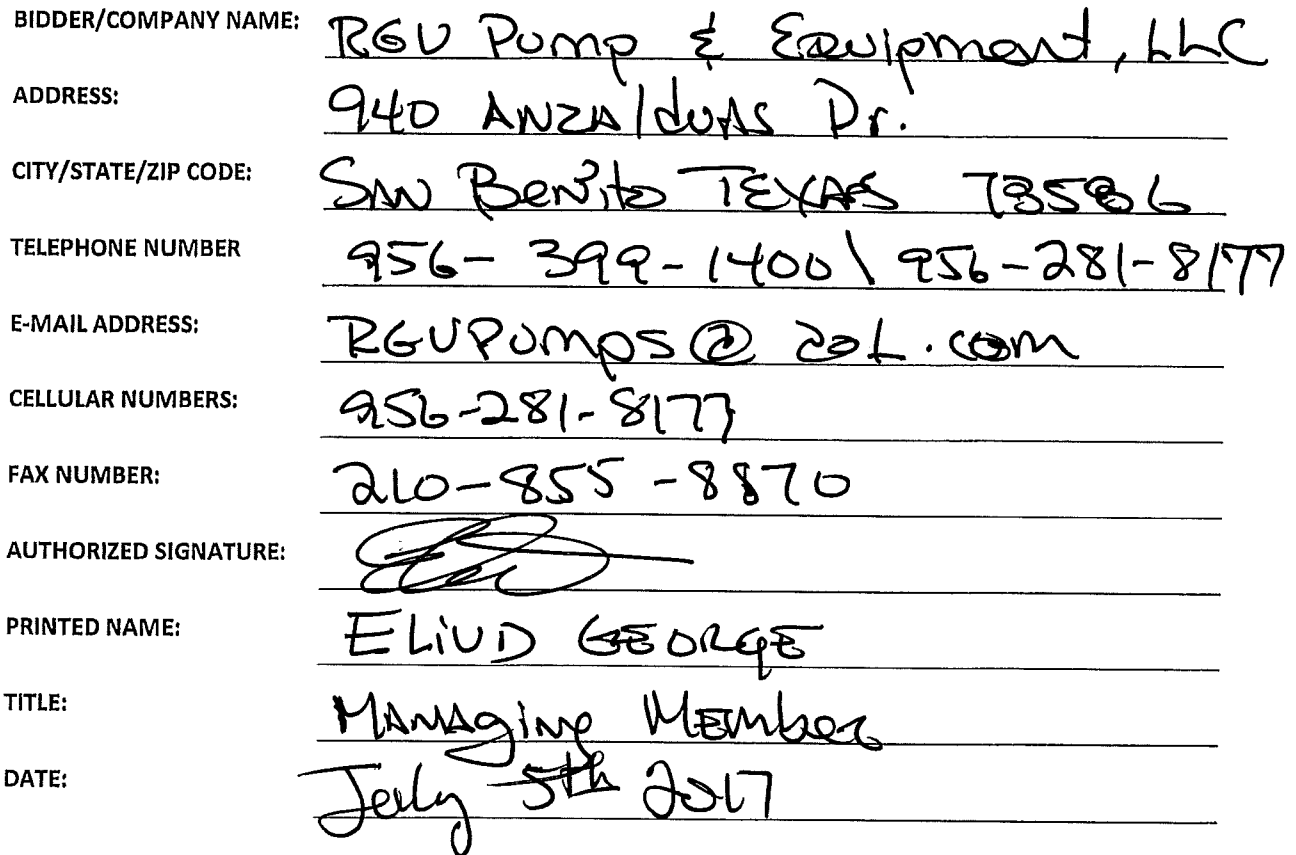 BIDDER/COMPANY NAME: RGV Pump & Equipment, LLC
ADDRESS: 940 ANZAlduAS Dr.
CITY/STATE/ZIP CODE: SAN Benito TEXAS 78586
TELEPHONE NUMBER 956-399-1400 \ 956-281-8177
E-MAIL ADDRESS: RGVPUmps@aol.com
CELLULAR NUMBERS: 956-281-8177
FAX NUMBER: 210-855-8870
AUTHORIZED SIGNATURE:
PRINTED NAME: ELiUD GEORGE
TITLE: MANAging MEmber
DATE: July 5th 2017